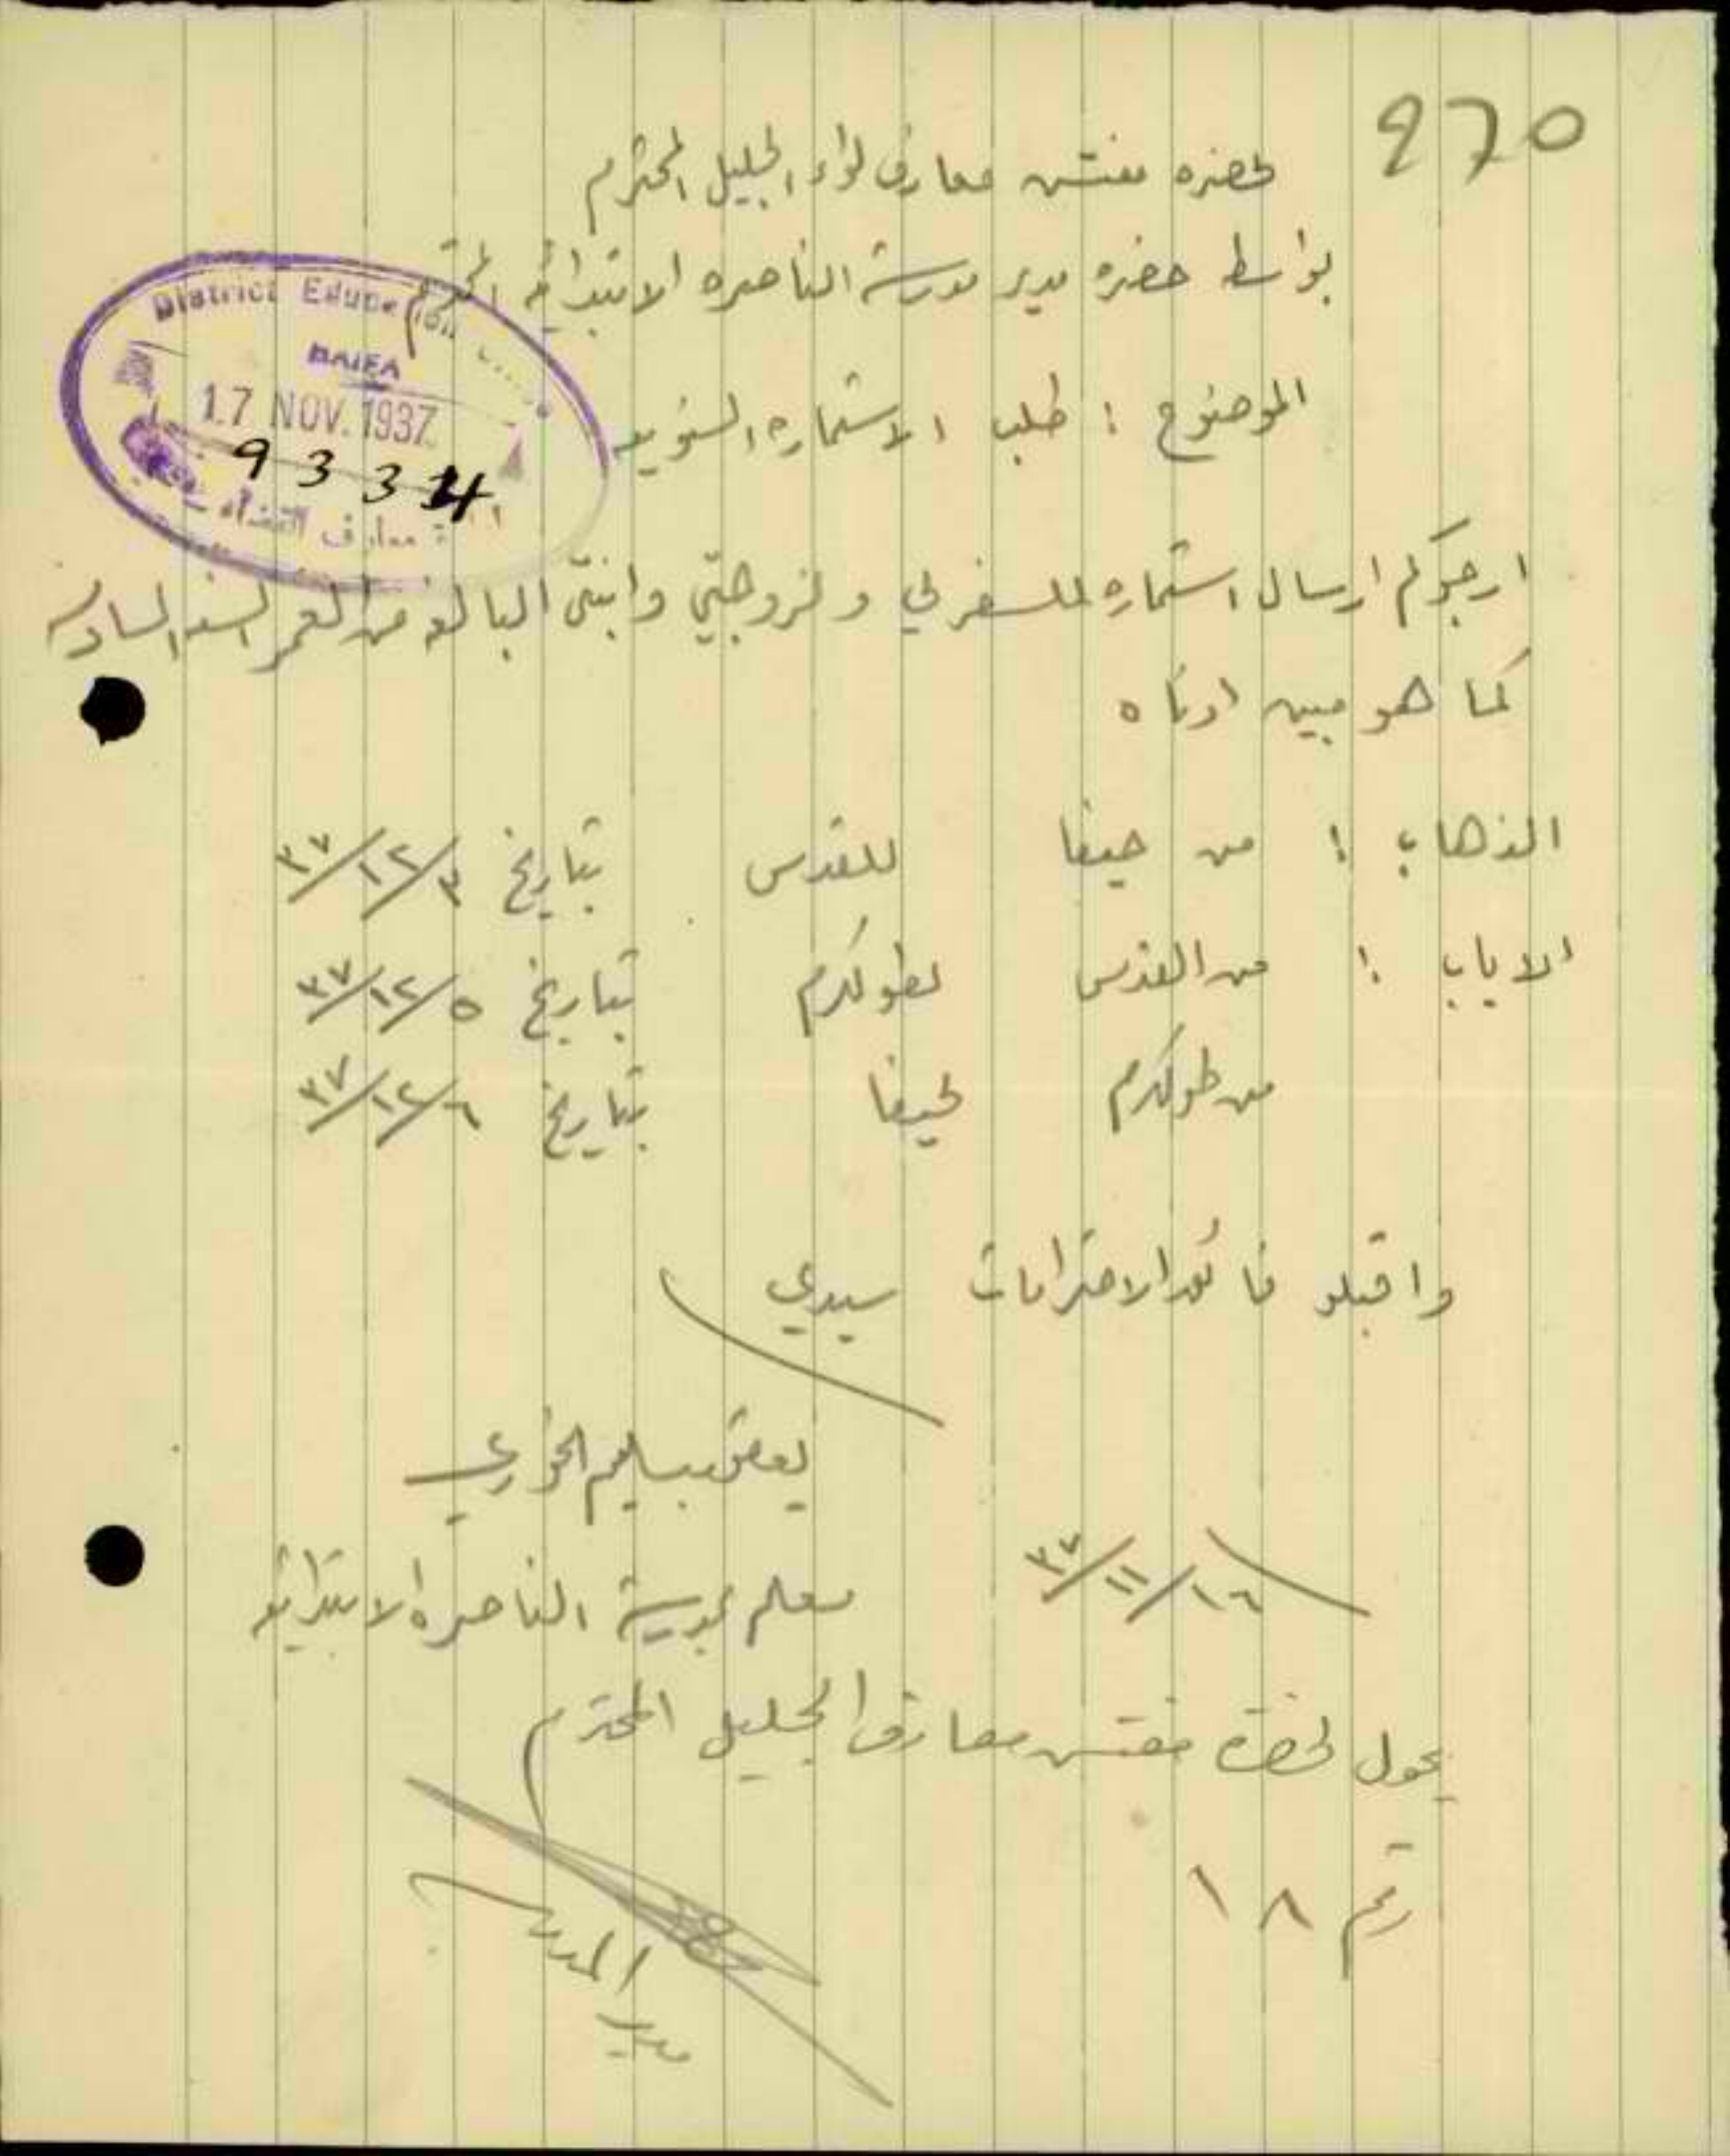 270
لحضره مفتش معارف لواء الجليل المحترم
بواسطة حضره مدير مدرسة الناصره الابتدائيه المحترم
District Education
HAIFA
17 NOV. 1937
9334
معارف القضاء
الموضوع : طلب الاستماره السنويه
ارجوكم ارسال استماره للسفر لي ولزوجتي وابنتي البالغه من العمر السنه السادسه
كما هو مبين ادناه
الذهاب : من حيفا للقدس بتاريخ ٣/١٢/٣٧
الاياب : من القدس لطولكرم بتاريخ ٥/١٢/٣٧
من طولكرم لحيفا بتاريخ ٦/١٢/٣٧
واقبلو فائق الاحترامات سيدي
يعقوب سليم الخوري
١٦/١١/٣٧
معلم بمدرسة الناصره الابتدائيه
يحول لحضرة مفتش معارف الجليل المحترم
رقم ١٨
مدير المدرسة